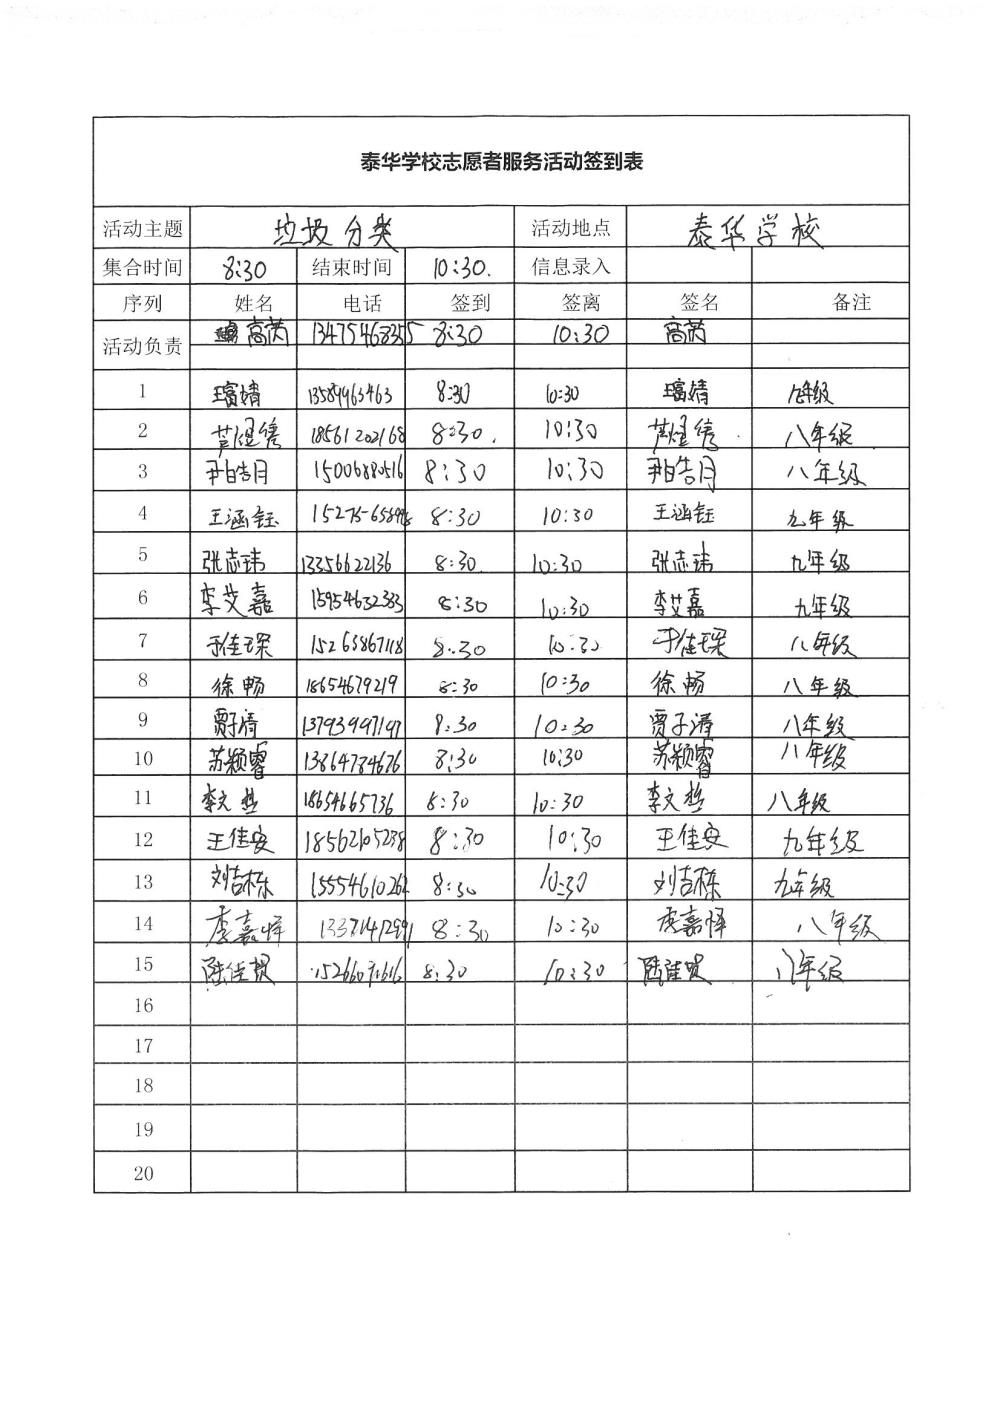 泰华学校志愿者服务活动签到表
活动主题 垃圾分类 活动地点 泰华学校
集合时间 8:30 结束时间 10:30. 信息录入
序列 姓名 电话 签到 签离 签名 备注
活动负责 高茵 13475468355 8:30 10:30 高茵
1 13589963463 8:30 10:30 九年级
2 18561202168 8:30. 10:30 八年级
3 尹皓月 15006880516 8:30 10:30 尹皓月 八年级
4 王涵钰 8:30 10:30 王涵钰 九年级
5 张志玮 13356622136 8:30 10:30 张志玮 九年级
6 李艾嘉 15954632383 8:30 10:30 李艾嘉 九年级
7 于佳琛 15265867118 8:30 10:30 于佳琛 八年级
8 徐畅 18654679219 8:30 10:30 徐畅 八年级
9 贾子清 13793997197 8:30 10:30 贾子清 八年级
10 苏颖睿 13864784676 8:30 10:30 苏颖睿 八年级
11 18654665736 8:30 10:30 八年级
12 王佳安 18562105238 8:30 10:30 王佳安 九年级
13 刘吉栋 15554610262 8:30 10:30 刘吉栋 九年级
14 李嘉怿 13371412991 8:30 10:30 李嘉怿 八年级
15 8:30 10:30 八年级
16
17
18
19
20